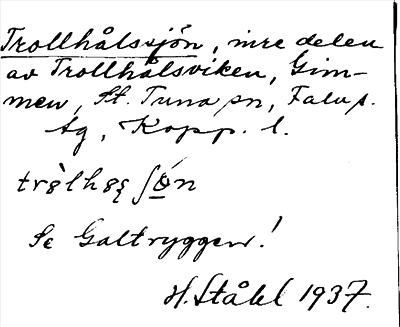 Trollhålssjön, inre delen
av Trollhålsviken, Gim-
men, St. Tuna sn, Falu s.
tg, Kopp. l.
Se Galtryggen!
H. Ståhl 1937.